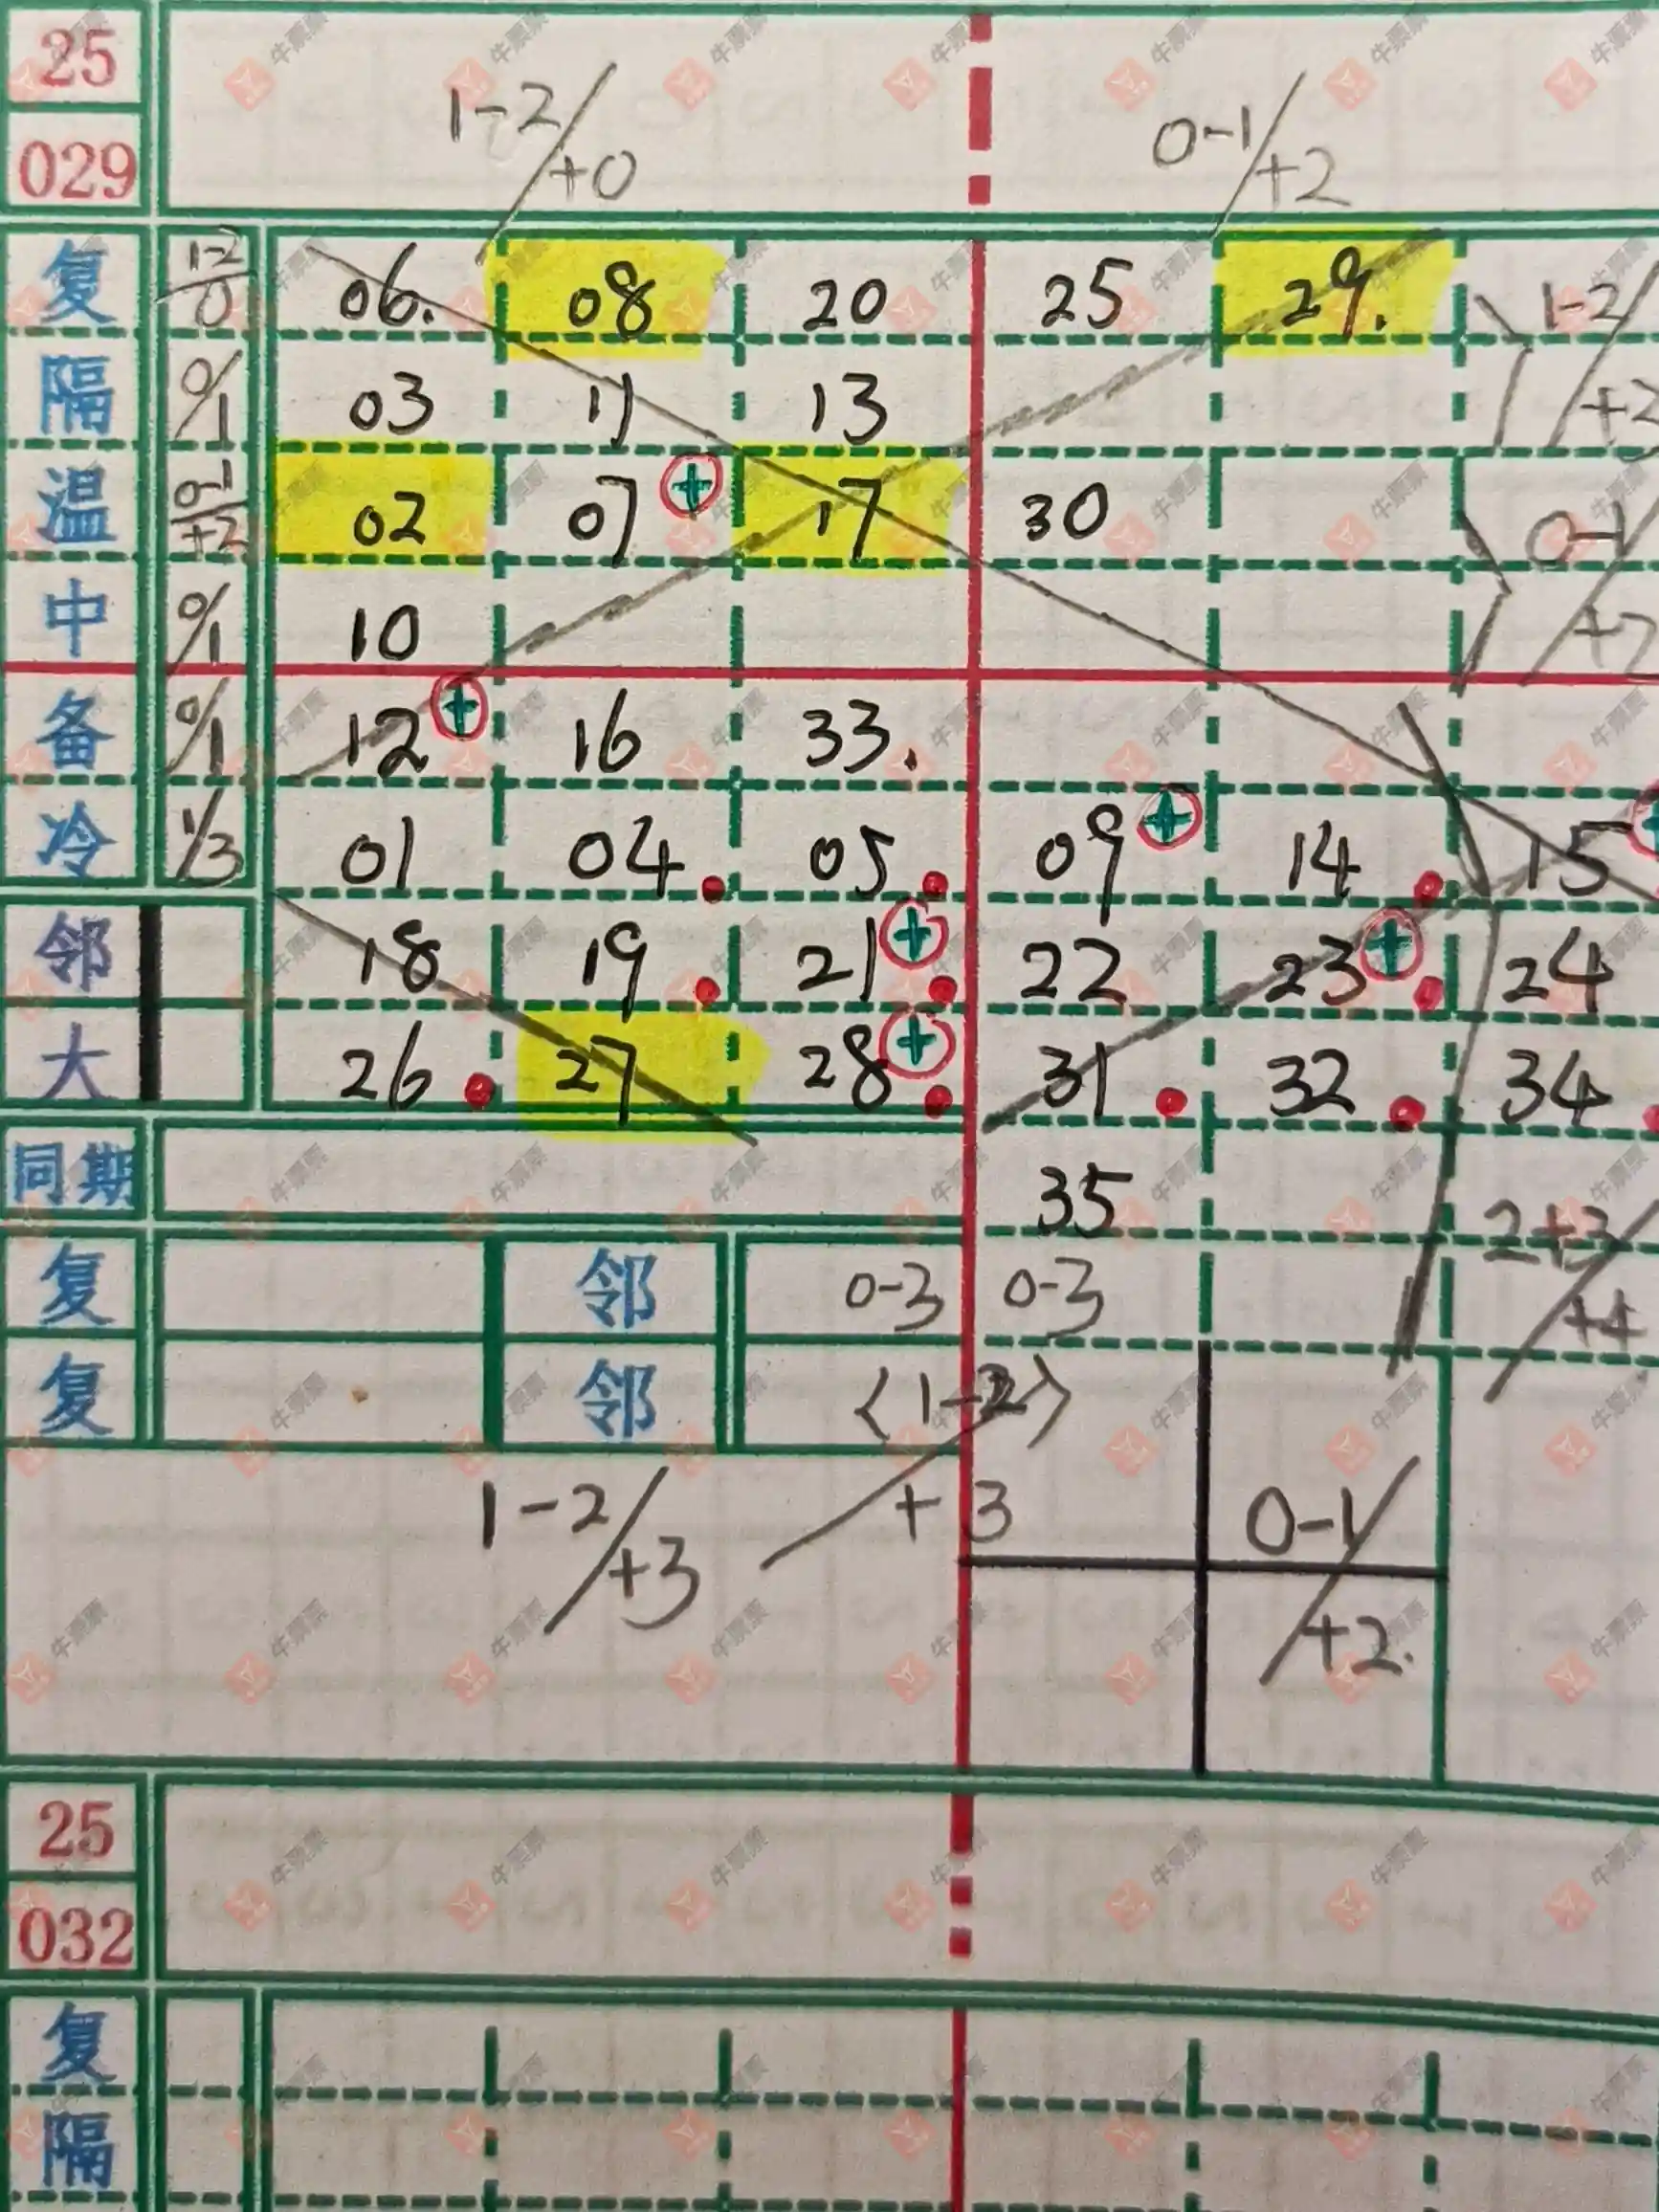 25
029
1-2/+0 0-1/+2
复 1-2/0 06. 08 20 25 29. 1-2/+2
隔 0/1 03 11 13
温 0-1/+2 02 07 + 17 30 0-1/+2
中 0/1 10
备 0/1 12 + 16 33.
冷 1/3 01 04 05 09 + 14 15 +
邻 18 19 21 + 22 23 + 24
大 26 27 28 + 31 32 34
同期 35
2+3/+4
复 邻 0-3 0-3
复 邻 <1-2>/+3
1-2/+3 0-1/+2.
25
032
复
隔
牛票票